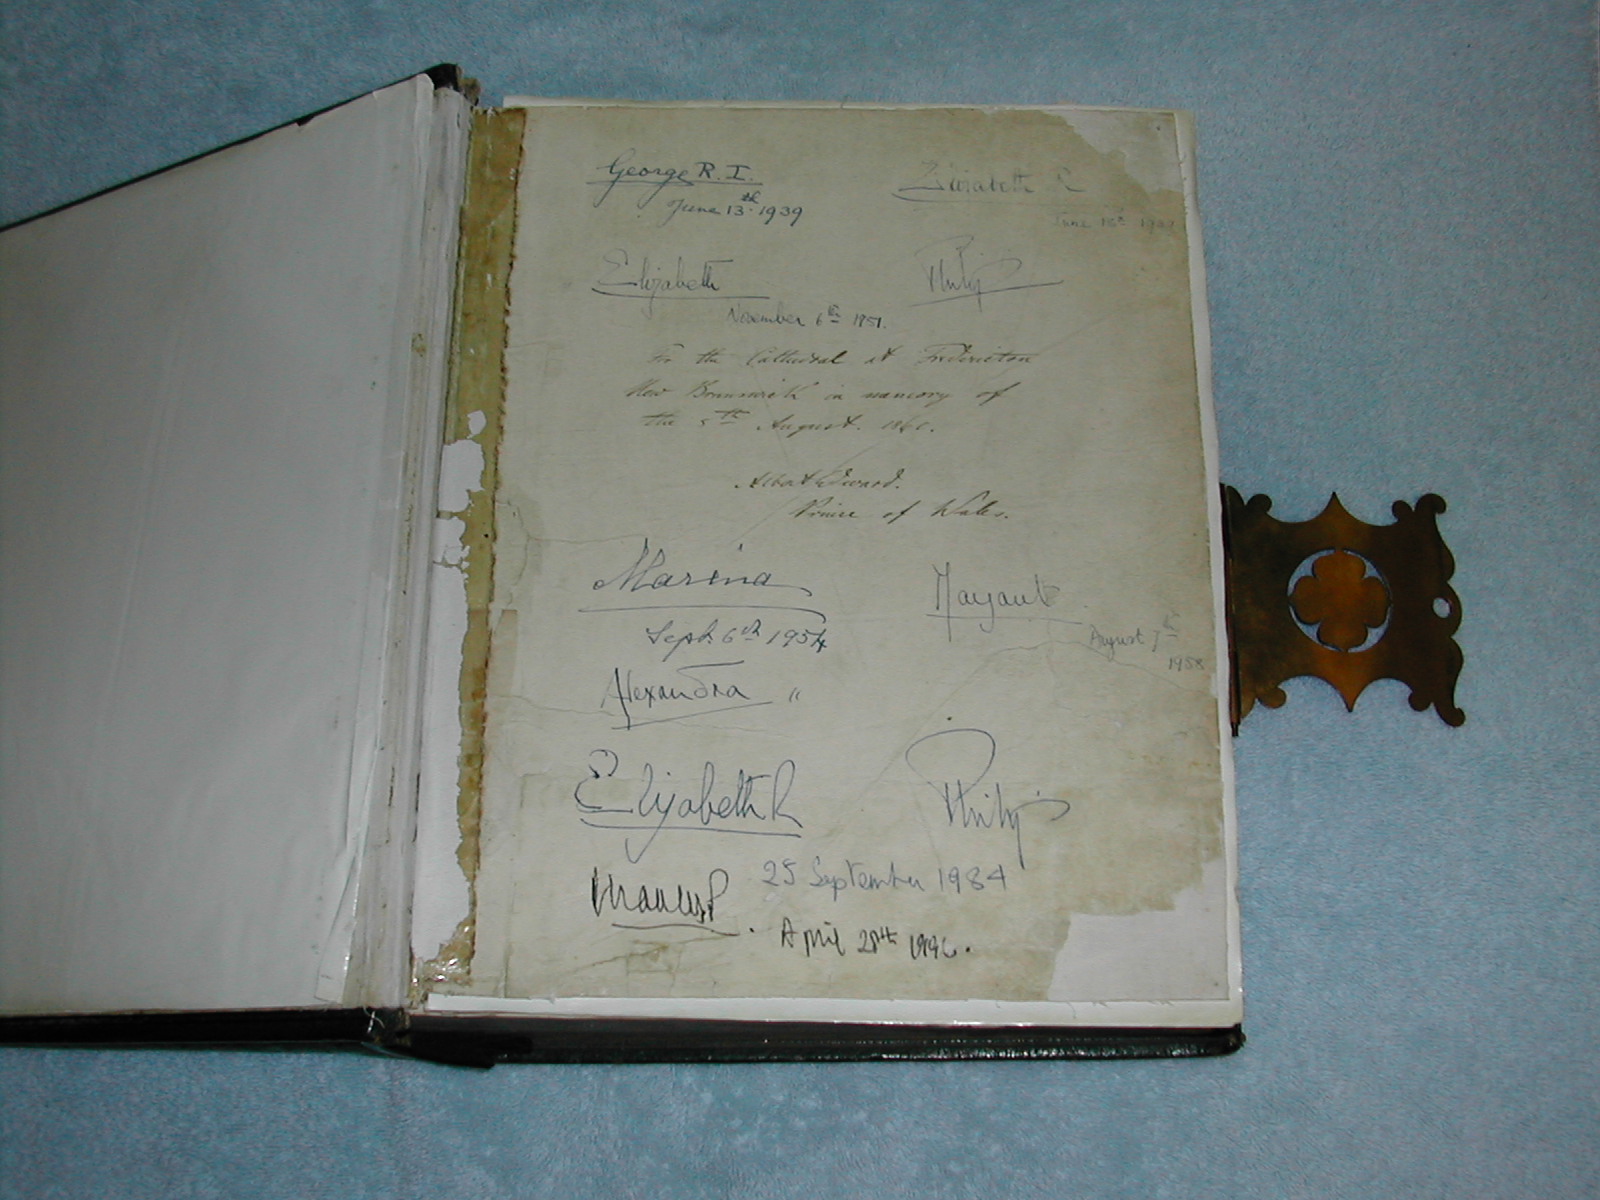 George R. I.
June 13th 1939
Elizabeth R
June 13th 1939
Elizabeth
Philip
November 6th 1951.
For the Cathedral at Fredericton
New Brunswick in memory of
the 5th August. 1860.
Albert Edward.
Prince of Wales.
Marina
Sept. 6th 1954
Margaret
August 7th
1958
Alexandra "
Elizabeth R
Philip
25 September 1984
April 28th 1996.